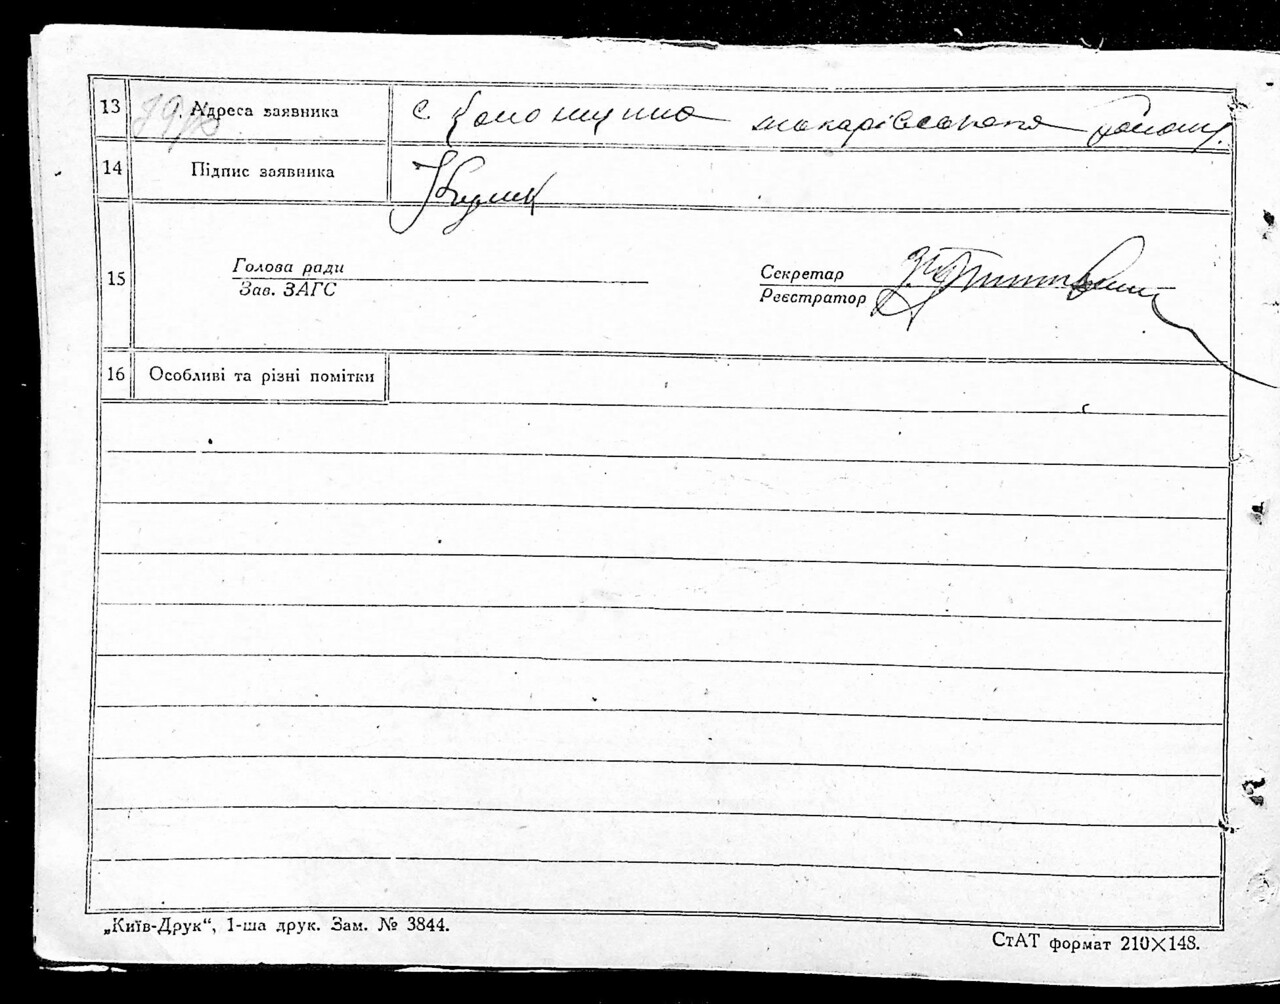 13 Адреса заявника с. макарівського району
14 Підпис заявника
15
Голова ради
Зав. ЗАГС
Секретар
Реєстратор
16 Особливі та різні помітки
„Київ-Друк“, 1-ша друк. Зам. № 3844.
СтАТ формат 210×148.